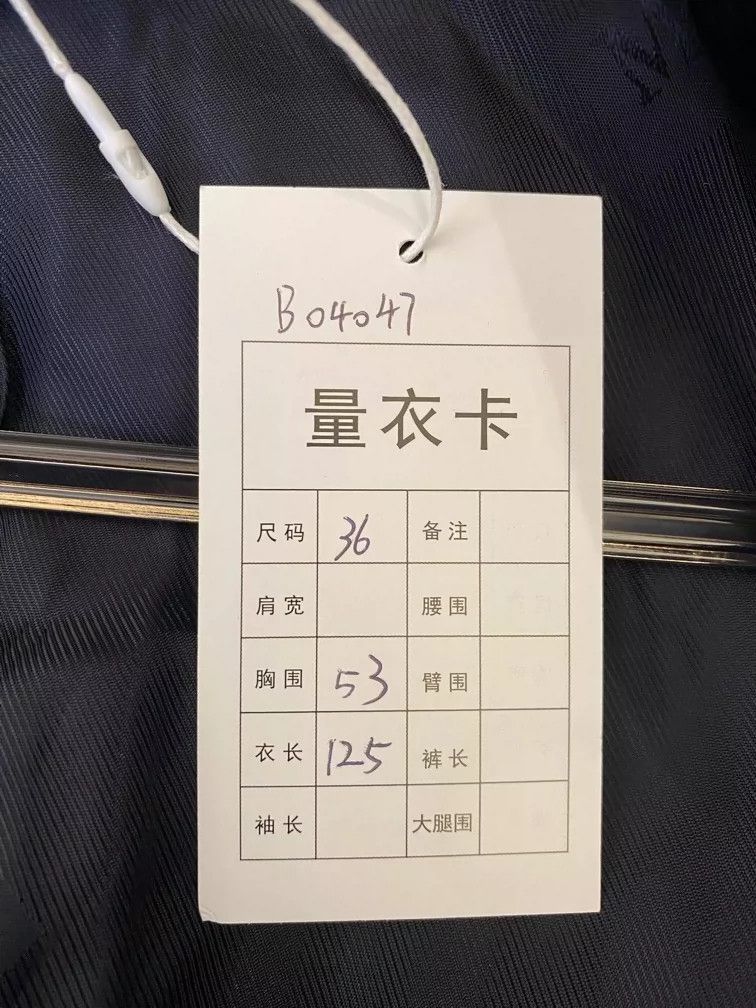 B04047
量衣卡
尺码 36 备注
肩宽 腰围
胸围 53 臂围
衣长 125 裤长
袖长 大腿围